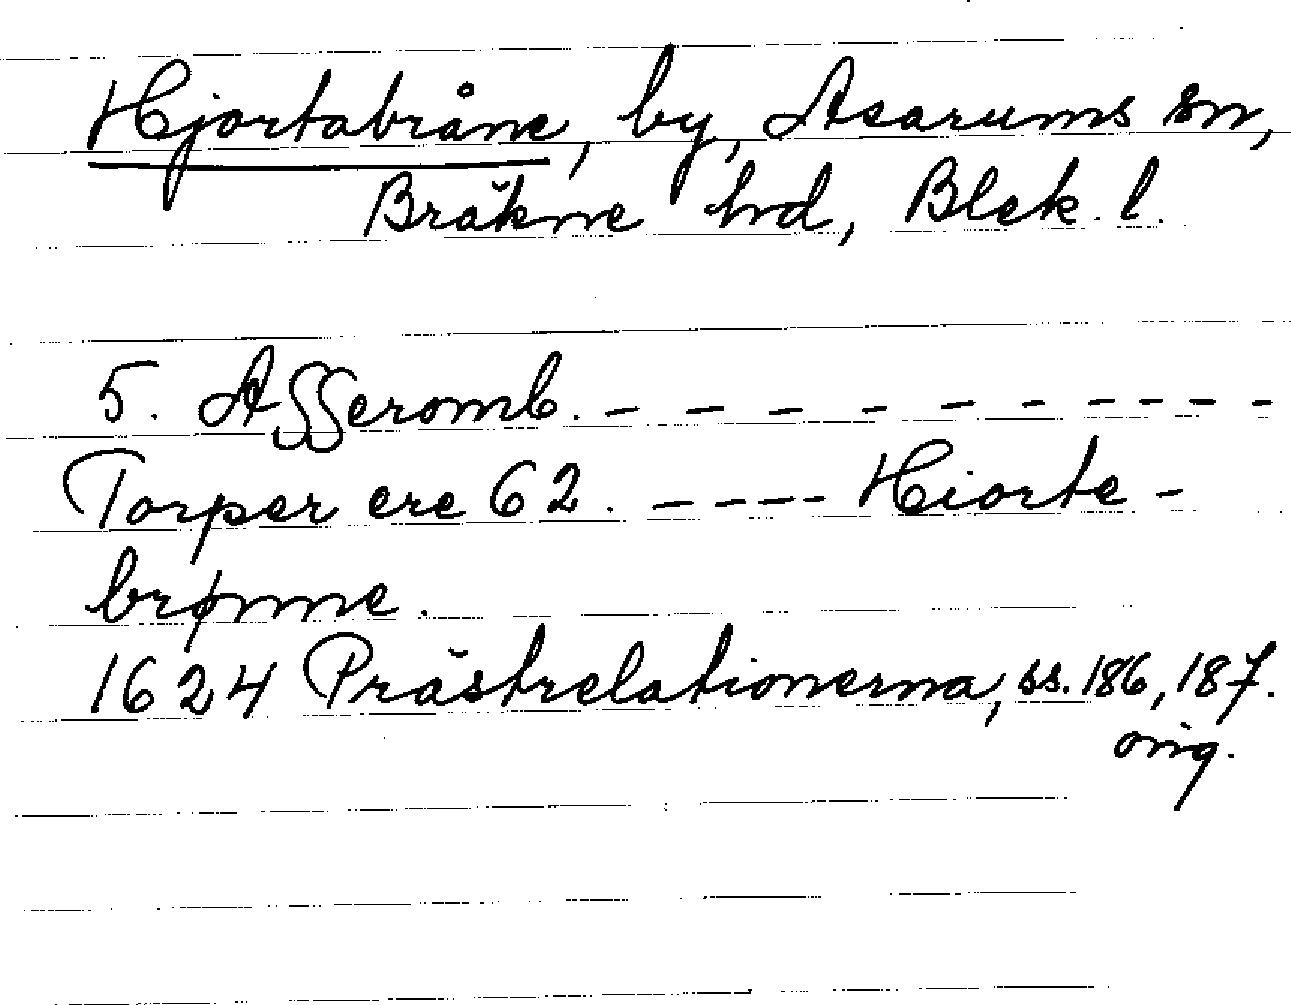 Hjortabråne, by, Asarums sn,
Bräkne hrd, Blek. l.
5. Asseromb. - - - - - - - - - -
Torper ere 62. - - - - Hiorte-
brønne.
1624 Prästrelationerna, ss. 186, 187.
orig.